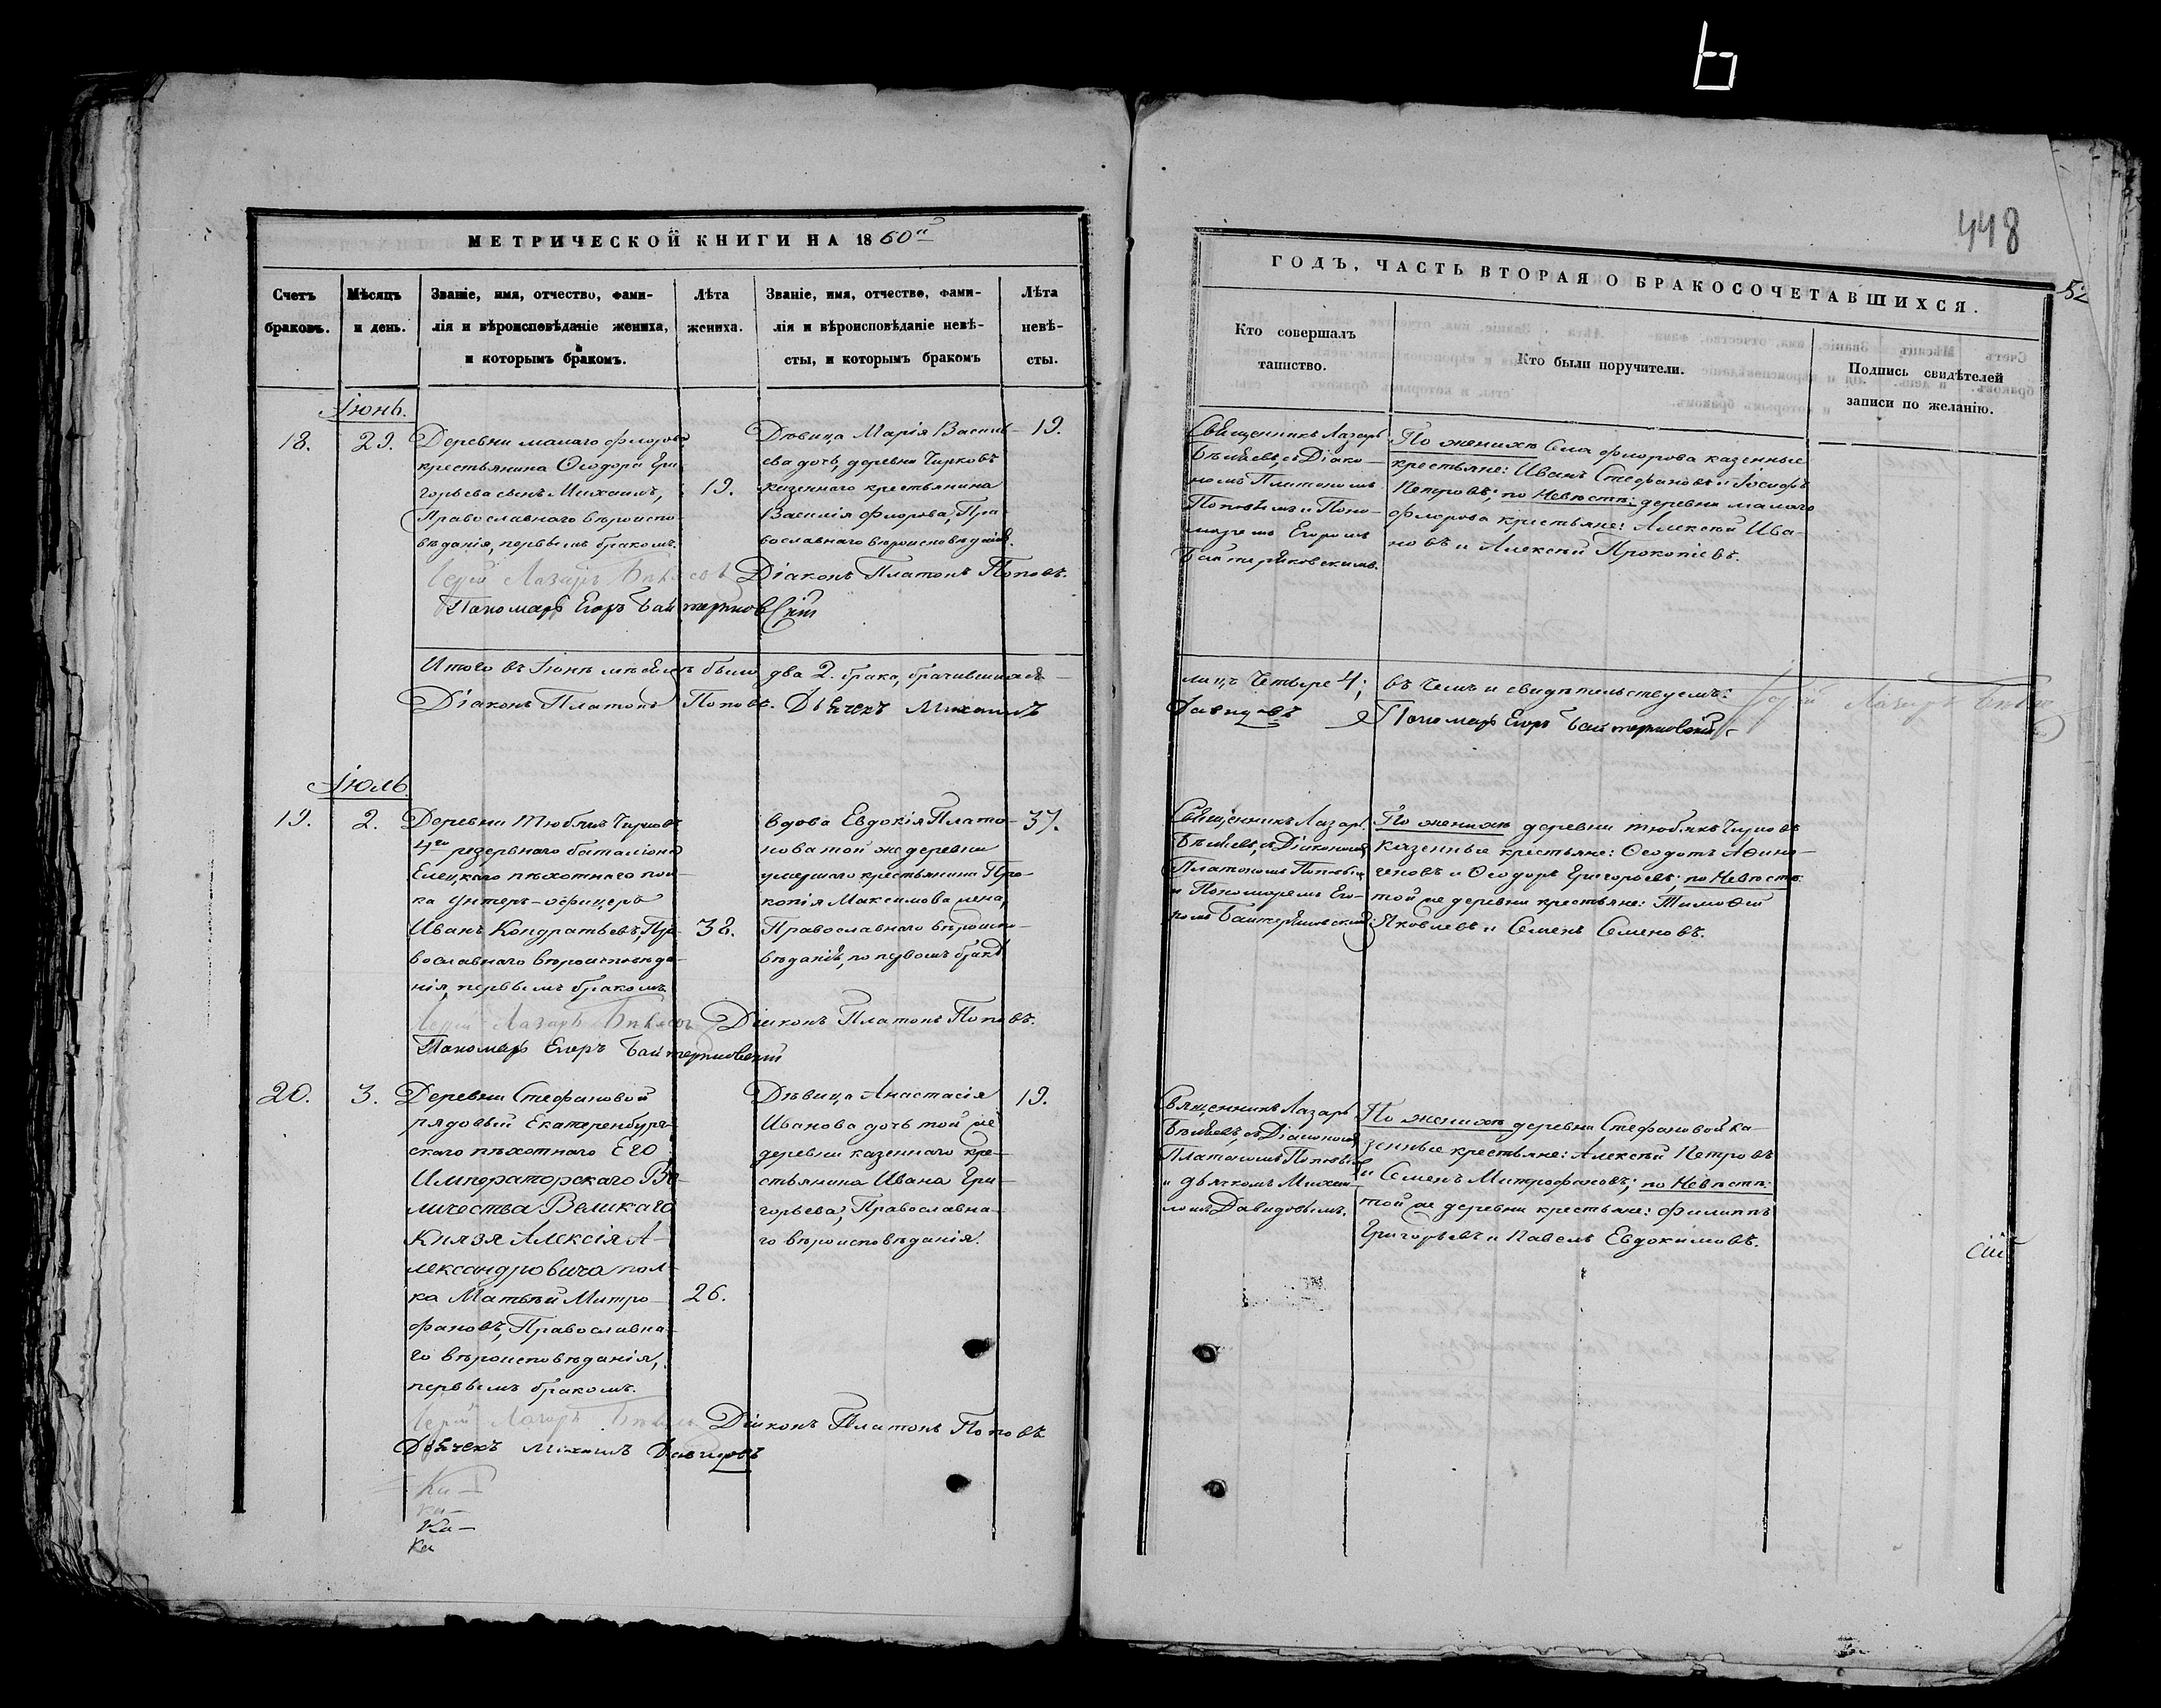 МЕТРИЧЕСКОЙ КНИГИ НА 1860й
Счетъ браковъ.
Мѣсяцъ и день.
Званіе, имя, отчество, фами-
лія и вѣроисповѣданіе жениха,
и которымъ бракомъ.
Лѣта
жениха.
Званіе, имя, отчество, фами-
лія и вѣроисповѣданіе невѣ-
сты, и которымъ бракомъ
Лѣта
невѣ-
сты.
Іюнь.
18.
29.
Деревни малаго Флорова
крестьянина Ѳеодора Гри
горьева сынъ Михаилъ,
Православнаго вѣроиспо-
вѣданія, первымъ бракомъ.
19.
Дѣвица Марія Василь-
ева дочь, деревни Чирковъ
казеннаго крестьянина
Василія Флорова, Пра
вославнаго вѣроисповѣданія.
19.
Іерей Лазарь Діаконъ Платонъ Поповъ.
Пономарь Егоръ Байтеряковскій
Итого въ Іюнѣ мѣсяцѣ было два 2. брака, брачившихся
Діаконъ Платонъ Поповъ. Дьячекъ Михаилъ
Іюль.
19.
2.
Деревни Тюбякъ Чирковъ
4го резервнаго баталіона
Елецкаго пѣхотнаго пол-
ка Унтеръ-офицеръ
Иванъ Кондратьевъ, Пра-
вославнаго вѣроисповѣда-
нія, первымъ бракомъ
38.
вдова Евдокія Плато-
нова той же деревни
умершаго крестьянина Про-
копія Максимова жена,
Православнаго вѣроиспо-
вѣданія, по первомъ бракѣ
37.
Іерей Лазарь Діаконъ Платонъ Поповъ.
Пономарь Егоръ Байтеряковскій
20.
3.
Деревни Стефановой
рядовый Екатеренбург-
скаго пѣхотнаго Его
Императорскаго Вы-
личества Великаго
Князя Алексія А-
лександровича пол-
ка Матвѣй Митро-
фановъ, Православна-
го вѣроисповѣданія,
первымъ бракомъ.
26.
Дѣвица Анастасія
Иванова дочь той же
деревни казеннаго кре-
стьянина Ивана Гри-
горьева, Православна-
го вѣроисповѣданія.
19.
Іерей Лазарь Діаконъ Платонъ Поповъ
Дьячекъ Михаилъ Давидовъ
Ка-
ка-
Ка-
Ка
448
52
ГОДЪ, ЧАСТЬ ВТОРАЯ О БРАКОСОЧЕТАВШИХСЯ.
Кто совершалъ
таинство.
Кто были поручители.
Подпись свидѣтелей
записи по желанію.
Священникъ Лазарь
съ Діако-
номъ Платономъ
Поповымъ и Поно-
маремъ Егоромъ
Байтеряковскимъ.
По женихѣ Села Флорова казенные
крестьяне: Иванъ Стефановъ и Іосифъ
Петровъ; по Невѣстѣ: деревни малаго
Флорова крестьяне: Алексѣй Ива-
новъ и Алексѣй Прокопіевъ.
лицъ Четыре 4; въ чемъ и свидѣтельствуемъ: Іерей Лазарь
Давидовъ Пономарь Егоръ Байтеряковскій
Священникъ Лазарь
съ Діакономъ
Платономъ Поповымъ
и Пономаремъ Его-
ромъ Байтеряковскимъ
По женихѣ деревни Тюбякъ Чирковъ
казенные крестьяне: Ѳеодотъ Аѳина-
геновъ и Ѳеодоръ Григорьевъ; по Невѣстѣ:
той же деревни крестьяне: Тимоѳей
Яковлевъ и Семенъ Семеновъ.
Священникъ Лазарь
съ Діакономъ
Платономъ Поповымъ
и дьячкомъ Михаи-
ломъ Давидовымъ.
По женихѣ деревни Стефановой ка-
зенные крестьяне: Алексѣй Петровъ
и Семенъ Митрофановъ; по Невѣстѣ:
той же деревни крестьяне: Филиппъ
Григорьевъ и Павелъ Евдокимовъ.